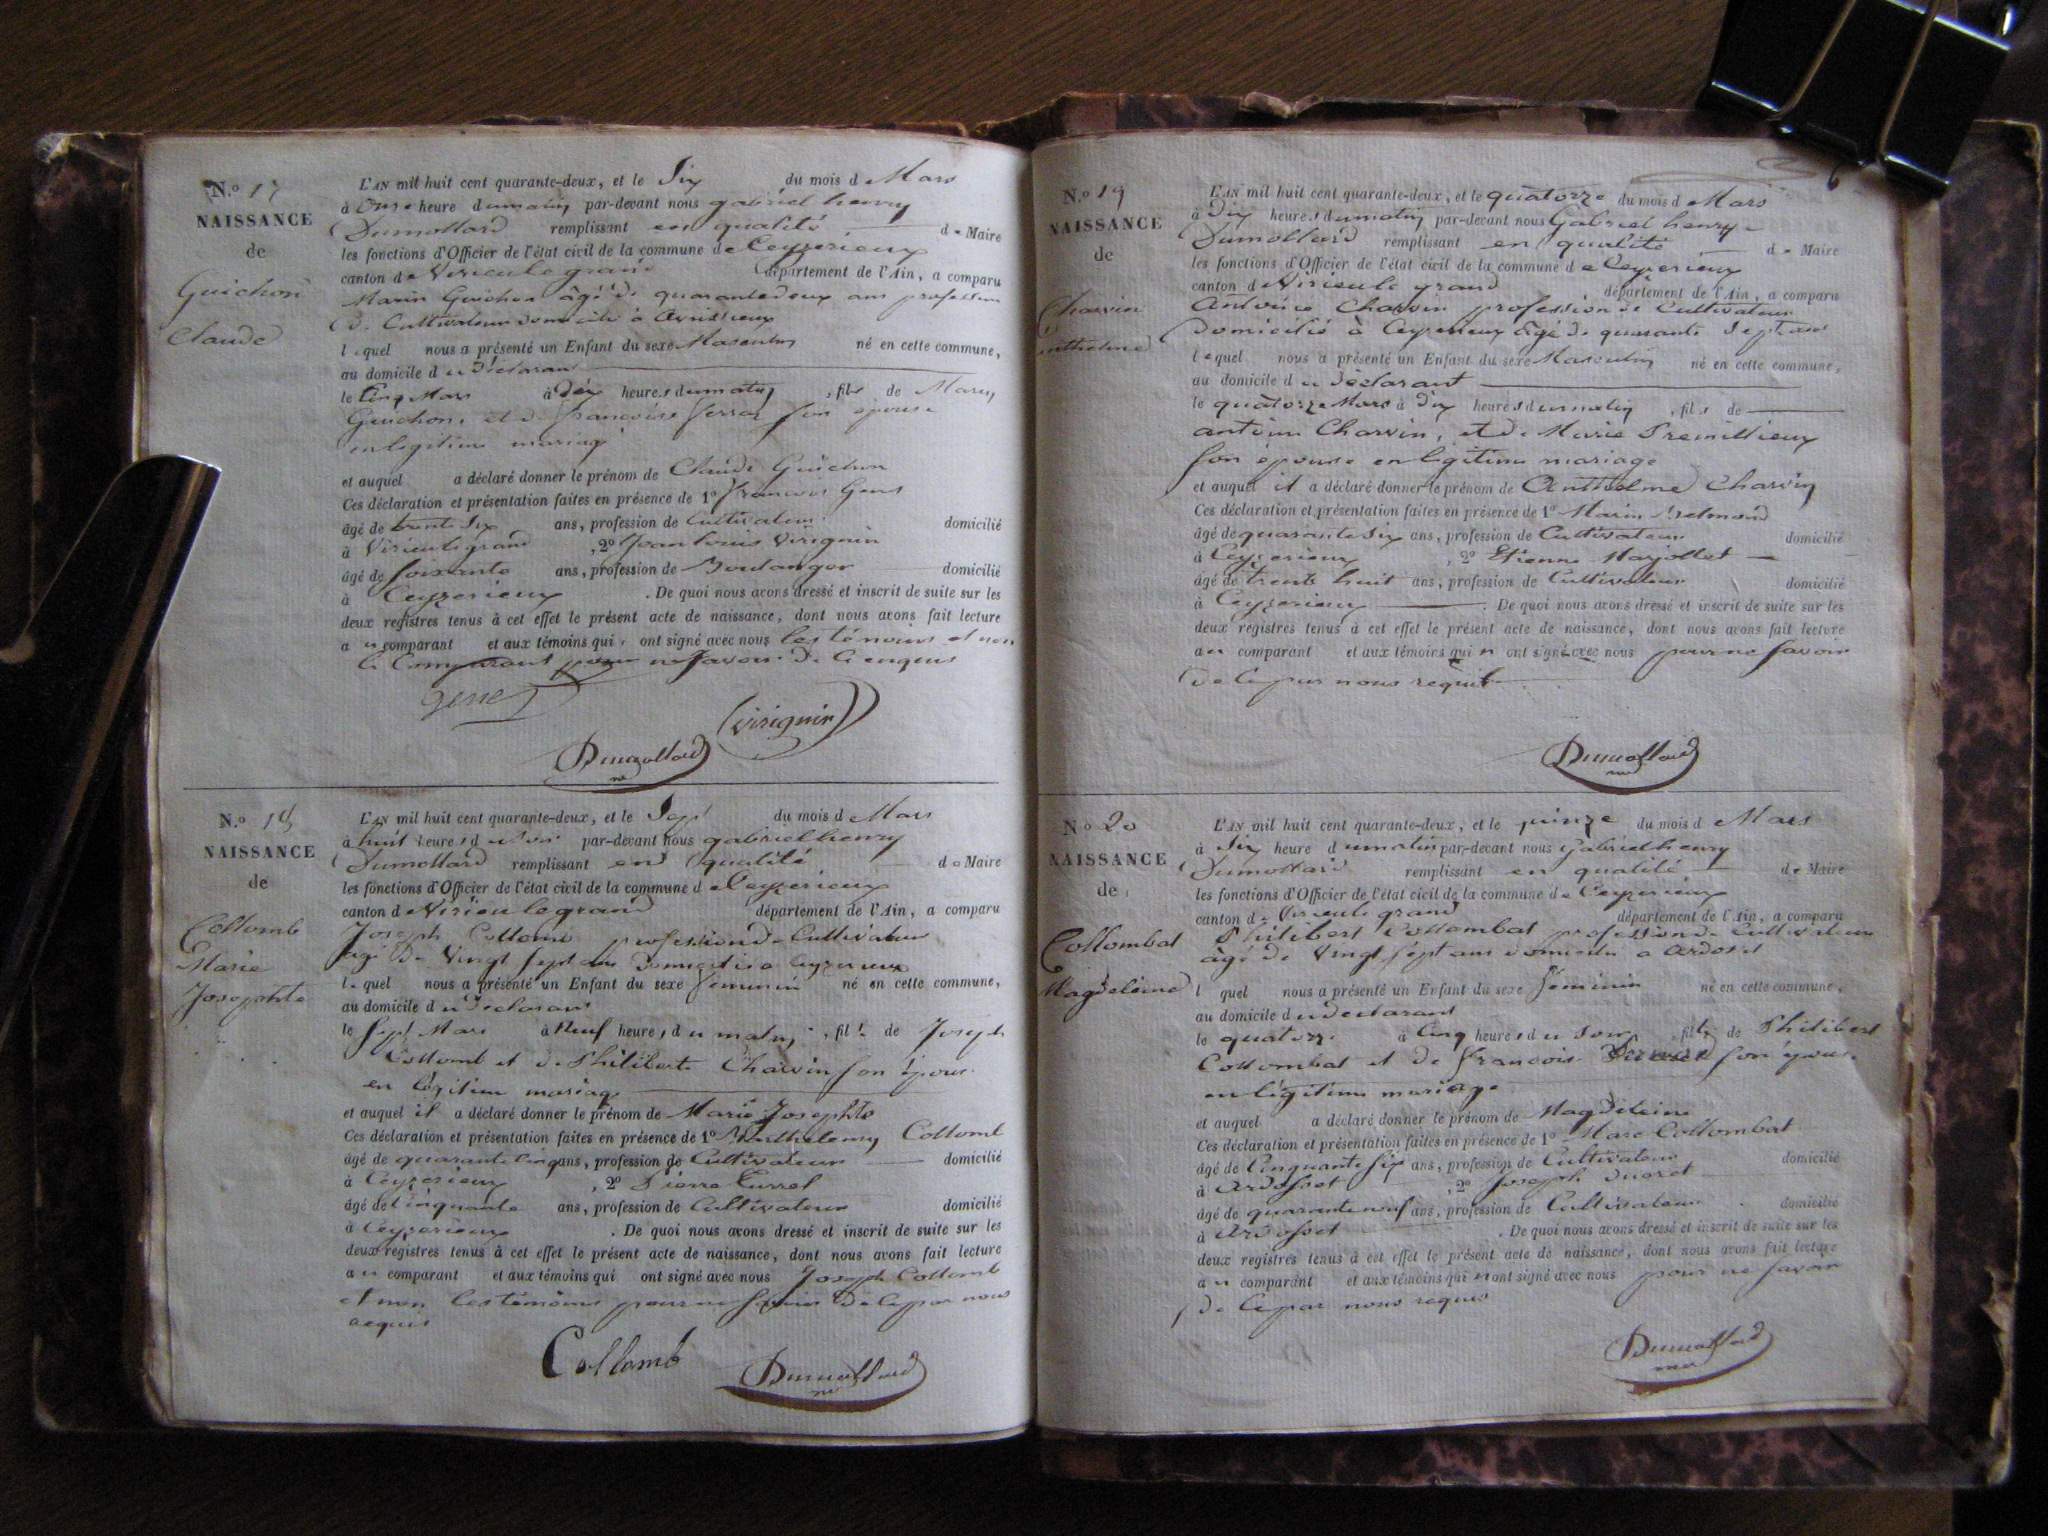 N.º 17
NAISSANCE
de
Guichon
Claude
L'AN mil huit cent quarante-deux, et le Six du mois d Mars
à Onze heure du matin par-devant nous gabriel henry
Dumollard remplissant en qualité de Maire
les fonctions d'Officier de l'état civil de la commune de Ceyzerieux
canton de Virieu le grand département de l'Ain, a comparu
Marin Guichon âgé de quarante deux ans profession
de Cultivateur domicilié à Avrissieux
lequel nous a présenté un Enfant du sexe Masculin né en cette commune,
au domicile du déclarant
le Cinq Mars à dix heures du matin, fils de Marin
Guichon, et de françoise ferraz son épouse
en legitime mariage
et auquel a déclaré donner le prénom de Claude Guichon
Ces déclaration et présentation faites en présence de 1º françois Gens
âgé de trente Six ans, profession de Cultivateur domicilié
à Virieu le grand, 2º Jean Louis Virignin
âgé de soixante ans, profession de Boulanger domicilié
à Ceyzerieux. De quoi nous avons dressé et inscrit de suite sur les
deux registres tenus à cet effet le présent acte de naissance, dont nous avons fait lecture
au comparant et aux témoins qui ont signé avec nous les témoins et non
le Comparant pour ne savoir de ce enquis
Virignin
Dumollard
N.º 18
NAISSANCE
de
Collomb
Marie
Josephte
L'AN mil huit cent quarante-deux, et le Sept du mois d Mars
à huit heures du soir par-devant nous gabriel henry
Dumollard remplissant en qualité de Maire
les fonctions d'Officier de l'état civil de la commune de Ceyzerieux
canton de Virieu le grand département de l'Ain, a comparu
Joseph Collomb profession de Cultivateur
âgé de Vingt sept ans domicilié a Ceyzerieux
lequel nous a présenté un Enfant du sexe feminin né en cette commune,
au domicile du déclarant
le sept Mars à Neuf heures du matin, fille de Joseph
Collomb et de Philiberte Charvin son épouse
en légitime mariage
et auquel il a déclaré donner le prénom de Marie Josephte
Ces déclaration et présentation faites en présence de 1º Barthelemy Collomb
âgé de quarante cinq ans, profession de Cultivateur domicilié
à Ceyzerieux, 2º Pierre Turrel
âgé de cinquante ans, profession de Cultivateur domicilié
à Ceyzerieux. De quoi nous avons dressé et inscrit de suite sur les
deux registres tenus à cet effet le présent acte de naissance, dont nous avons fait lecture
au comparant et aux témoins qui ont signé avec nous Joseph Collomb
et non les témoins pour ne savoir de ce par nous
requis
Collomb
Dumollard
N.º 19
NAISSANCE
de
Charvin
Anthelme
L'AN mil huit cent quarante-deux, et le quatorze du mois d Mars
à Dix heures du matin par-devant nous Gabriel henry
Dumollard remplissant en qualité de Maire
les fonctions d'Officier de l'état civil de la commune de Ceyzerieux
canton de Virieu le grand département de l'Ain, a comparu
Antoine Charvin profession de Cultivateur
domicilié à Ceyzerieux âgé de quarante Sept ans
lequel nous a présenté un Enfant du sexe Masculin né en cette commune,
au domicile du déclarant
le quatorze Mars à dix heures du matin, fils de
antoine Charvin, et de Marie Premillieux
son épouse en legitime mariage
et auquel il a déclaré donner le prénom de Anthelme Charvin
Ces déclaration et présentation faites en présence de 1º Marin
âgé de quarante six ans, profession de Cultivateur domicilié
à Ceyzerieux, 2º Etienne Marjollet
âgé de trente huit ans, profession de Cultivateur domicilié
à Ceyzerieux. De quoi nous avons dressé et inscrit de suite sur les
deux registres tenus à cet effet le présent acte de naissance, dont nous avons fait lecture
au comparant et aux témoins qui n ont signé avec nous pour ne savoir
de ce par nous requis
Dumollard
Nº 20
NAISSANCE
de
Collombat
Magdeleine
L'AN mil huit cent quarante-deux, et le quinze du mois d Mars
à Six heure du matin par-devant nous Gabriel henry
Dumollard remplissant en qualité de Maire
les fonctions d'Officier de l'état civil de la commune de Ceyzerieux
canton de Virieu le grand département de l'Ain, a comparu
Philibert Collombat profession de Cultivateur
âgé de Vingt sept ans domicilié a Ardosset
l quel nous a présenté un Enfant du sexe féminin né en cette commune,
au domicile du declarant
le quatorze à Cinq heures du soir, fille de Philibert
Collombat et de françoise son épouse
en légitime mariage
et auquel a déclaré donner le prénom de Magdeleine
Ces déclaration et présentation faites en présence de 1º Marc Collombat
âgé de Cinquante six ans, profession de Cultivateur domicilié
à Ardosset, 2º Joseph
âgé de quarante neuf ans, profession de Cultivateur domicilié
à Ardosset. De quoi nous avons dressé et inscrit de suite sur les
deux registres tenus à cet effet le présent acte de naissance, dont nous avons fait lecture
au comparant et aux témoins qui n ont signé avec nous pour ne savoir
de ce par nous requis
Dumollard